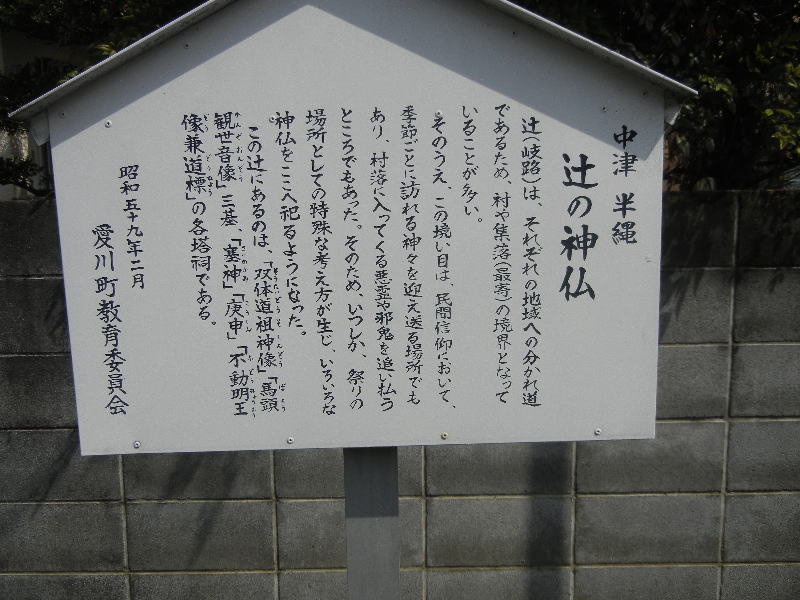 中津 半縄
辻の神仏
辻(岐路)は、それぞれの地域への分かれ道
であるため、村や集落(最寄)の境界となって
いることが多い。
そのうえ、この境い目は、民間信仰において、
季節ごとに訪れる神々を迎え送る場所でも
あり、村落に入ってくる悪霊や邪鬼を追い払う
ところでもあった。そのため、いつしか、祭りの
場所としての特殊な考え方が生じ、いろいろな
神仏をここへ祀るようになった。
この辻にあるのは、「双体道祖神像」「馬頭
観世音像」三基、「塞神」「庚申」「不動明王
像兼道標」の各塔祠である。
昭和五十九年二月
愛川町教育委員会